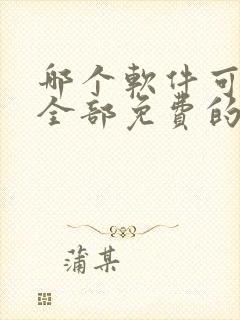 哪个軟件可
全部免費的
蒲某